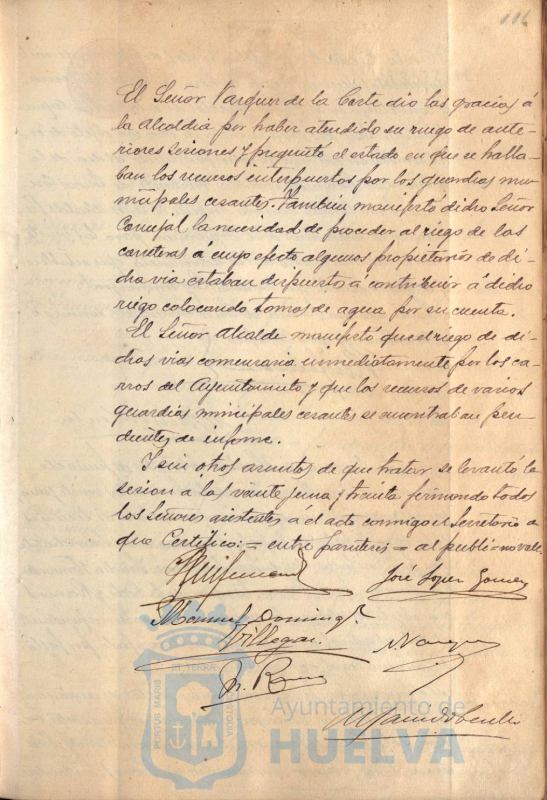 116
El Señor Vazquez de la Corte dio las gracias á
la Alcaldia por haber atendido su ruego de ante-
riores sesiones y preguntó el estado en que se halla-
ban los recursos interpuestos por los guardias mu-
nicipales cesantes. Tambien manifestó dicho Señor
Concejal la necesidad de proceder al riego de las
carreteras á cuyo efecto algunos propietarios de di-
cha via estaban dispuestos a contribuir á dicho
riego colocando tomas de agua por su cuenta.
El Señor Alcalde manifestó que el riego de di-
chas vias comenzaria inmediatamente por los ca-
rros del Ayuntamiento y que los recursos de varios
guardias municipales cesantes se encontraban pen-
dientes de informe.
Y sin otros asuntos de que tratar se levantó la
sesion a las veinte y una y treinta firmando todos
los Señores asistentes á el acto conmigo el Secretario de
que Certifico: = entre parentesis = al publi = no vale.
José Lopez Gomez
Manuel Doming.
Villegas.
Vazquez
PORTUS MARIS ET TERRAE CUSTODIA
Ayuntamiento de
HUELVA